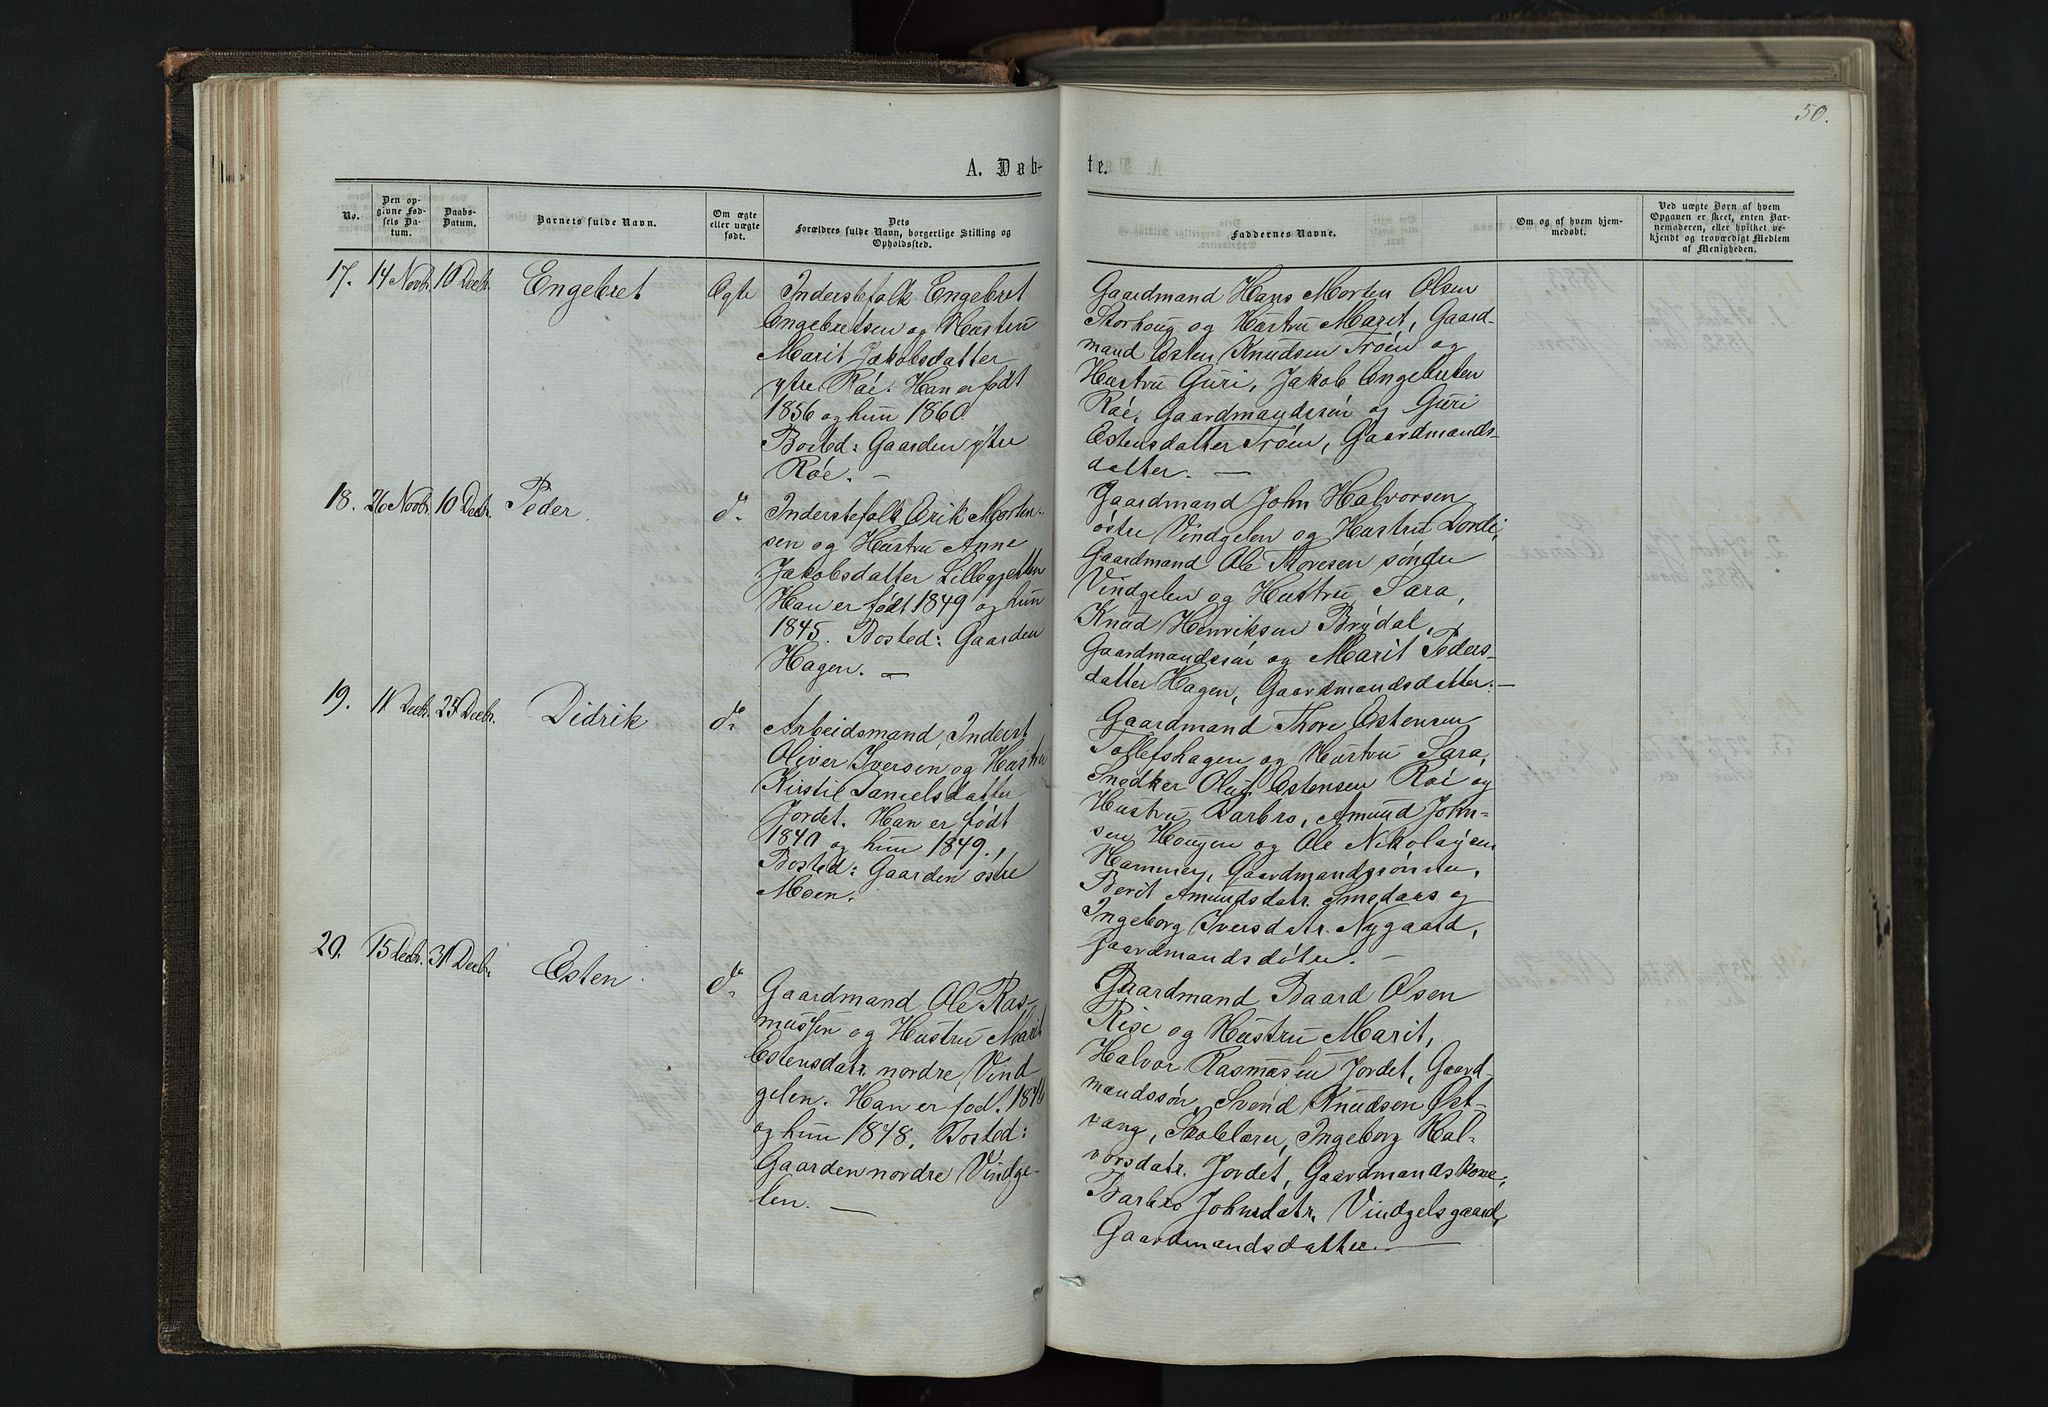 50.
A. Døb-
te.
No.
Den op-
givne Fød-
sels Da-
tum.
Daabs-
Datum.
Barnets fulde Navn.
Om ægte
eller uægte
født.
Dets
Forældres fulde Navn, borgerlige Stilling og
Opholdssted.
Faddernes Navne.
Om og af hvem hjem-
medøbt.
Ved uægte Børn af hvem
Opgaven er skeet, enten Bar-
nemoderen, eller hvilket ve-
kjendt og troværdigt Medlem
af Menigheden.
17. 14 Novbr. 10 Decbr. Engebret Ægte
Inderstefolk Engebret
Engebretsen og Hustru
Marit Jakobsdatter
ytre Røe. Han er født
1856 og hun 1860
Bosted: Gaarden ytre
Røe. —
Gaardmand Hans Morten Olsen
Storhoug og Hustru Marit, Gaard-
mand Esten Knudsen Trøen og
Hustru Guri, Jakob Engebretsen
Røe, Gaardmandssøn og Guri
Estensdatter Trøen, Gaardmands-
datter. —
18. 26 Novbr. 10 Decbr. Peder. do.
Inderstefolk Erik Morten-
sen og Hustru Anne
Jakobsdatter Lillegjelten
Han er født 1849 og hun
1845. Bosted: Gaarden
Hagen. —
Gaardmand John Halvorsen
østre Vindgelen og Hustru Dordi,
Gaardmand Ole Thoresen søndre
Vindgelen og Hustru Sara,
Knud Henriksen Brydal,
Gaardmandssøn og Marit Peders-
datter Hagen, Gaardmandsdatter. —
19. 11 Decbr. 25 Decbr. Didrik do.
Arbeidsmand, Inderst
Oliver Iversen og Hustru
Kirstil Danielsdatter
Jordet. Han er født
1840 og hun 1849.,
Bosted: Gaarden østre
Moen.
Gaardmand Thore Estensen
Tollefshagen og Hustru Sara,
Snedker Oluf Estensen Røe og
Hustru Barbro, Amund John-
sen Hougen og Ole Nikolaysen
Hammer, Gaardmandssønner,
Berit Amundsdatr. Smedaas og
Ingeborg Iversdatr. Nygaard,
Gaardmandsdøtre. —
20. 15 Decbr. 31 Decbr. Esten do.
Gaardmand Ole Ras-
mussen og Hustru Marit
Estensdatr. nordre Vind
gelen. Han er født 1846
og hun 1848. Bosted:
Gaarden nordre Vindge-
len. —
Gaardmand Baard Olsen
Rise og Hustru Marit,
Halvor Rasmussen Jordet, Gaard-
mandssøn, Svend Knudsen Øst-
vang, Skolelærer, Ingeborg Hal-
vorsdatr. Jordet, Gaardmandskone,
Barbro Johnsdatr. Vindgelsgaard,
Gaardmandsdatter. —